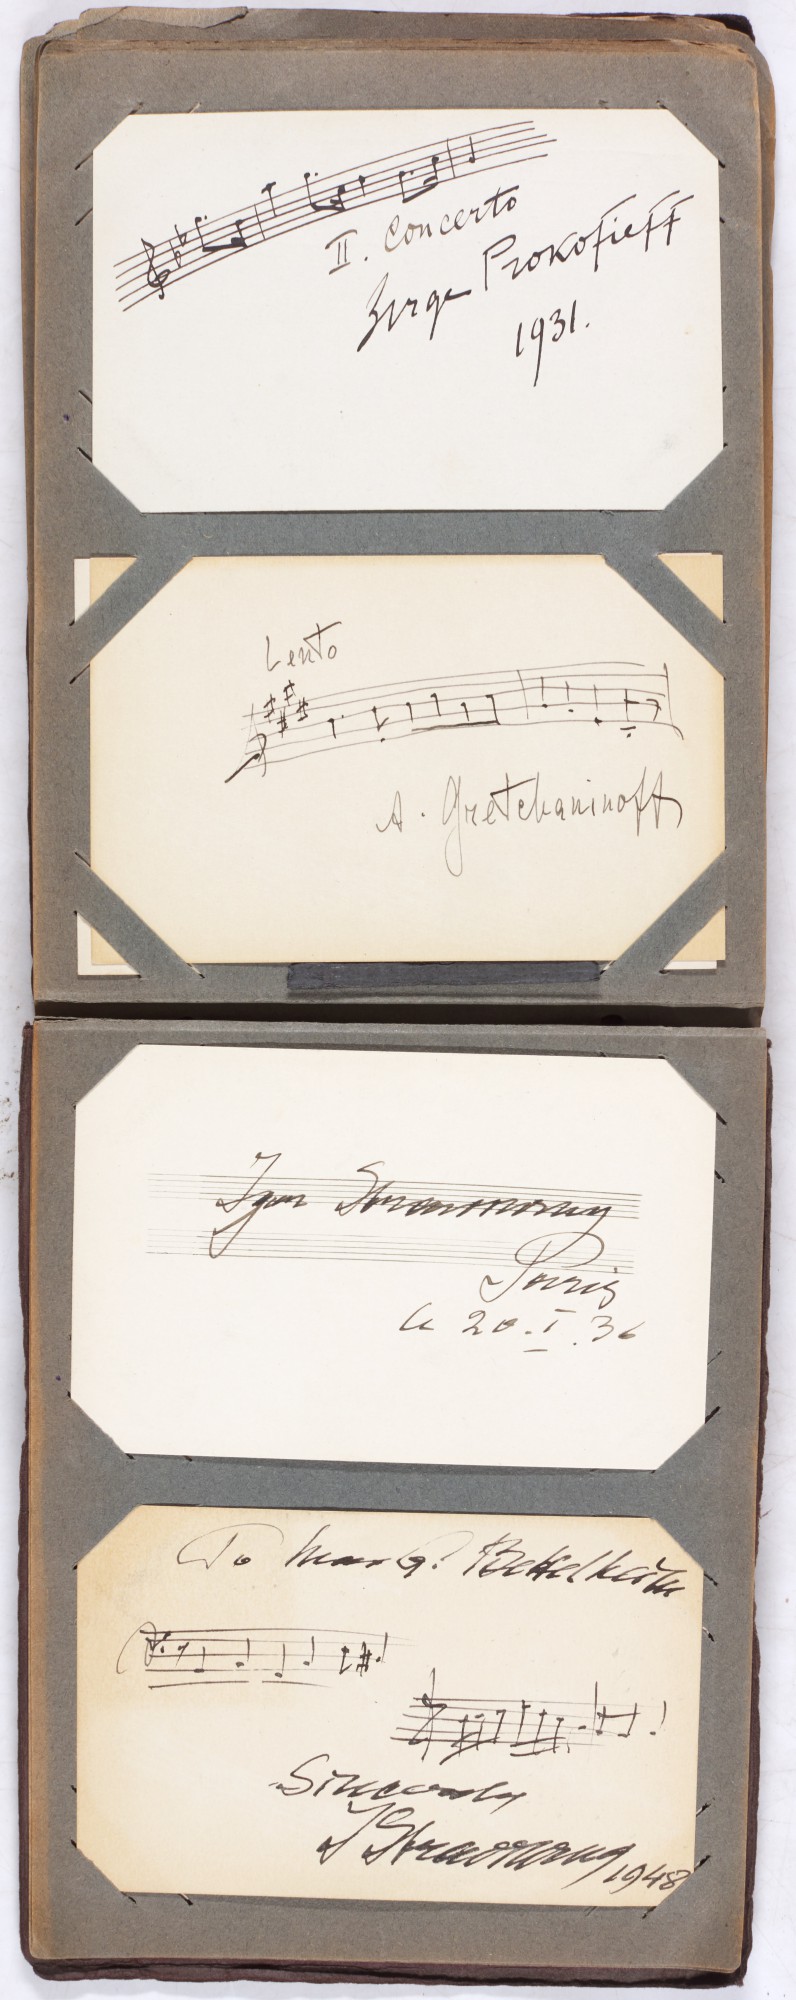 II. Concerto
Serge Prokofieff
1931.
Lento
A. Gretchaninoff
Igor Strawinsky
Paris
le 20. I. 36
To G. Bettelheim
Sincerely
I Strawinsky
1948